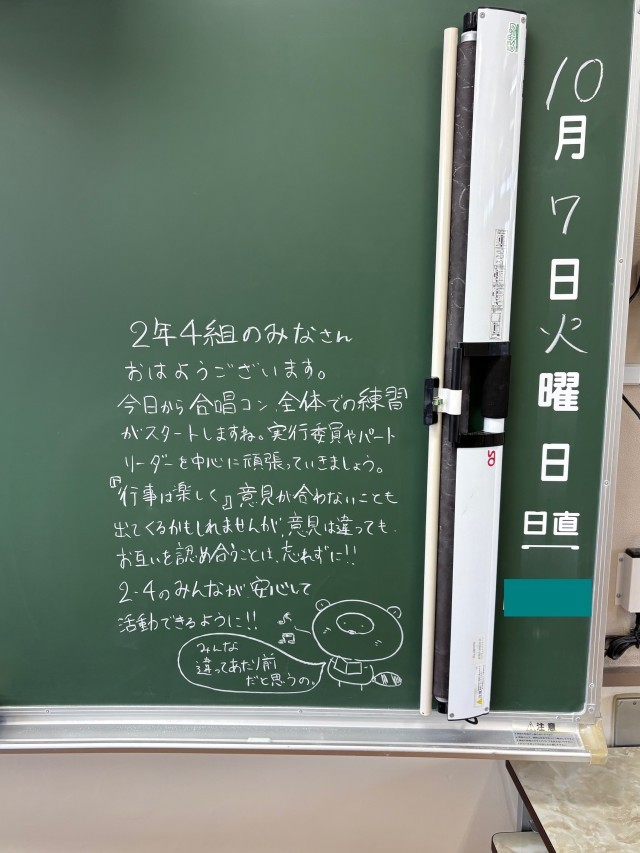 2年4組のみなさん
おはようございます。
今日から合唱コン、全体での練習
がスタートしますね。実行委員やパート
リーダーを中心に頑張っていきましょう。
『行事は楽しく』意見が合わないことも
出てくるかもしれませんが、意見は違っても、
お互いを認め合うことは、忘れずに!!
2-4のみんなが、安心して
活動できるように!!
みんな
違ってあたり前
だと思うの。
10
月
7
日
火
曜
日
日直
OS
注意